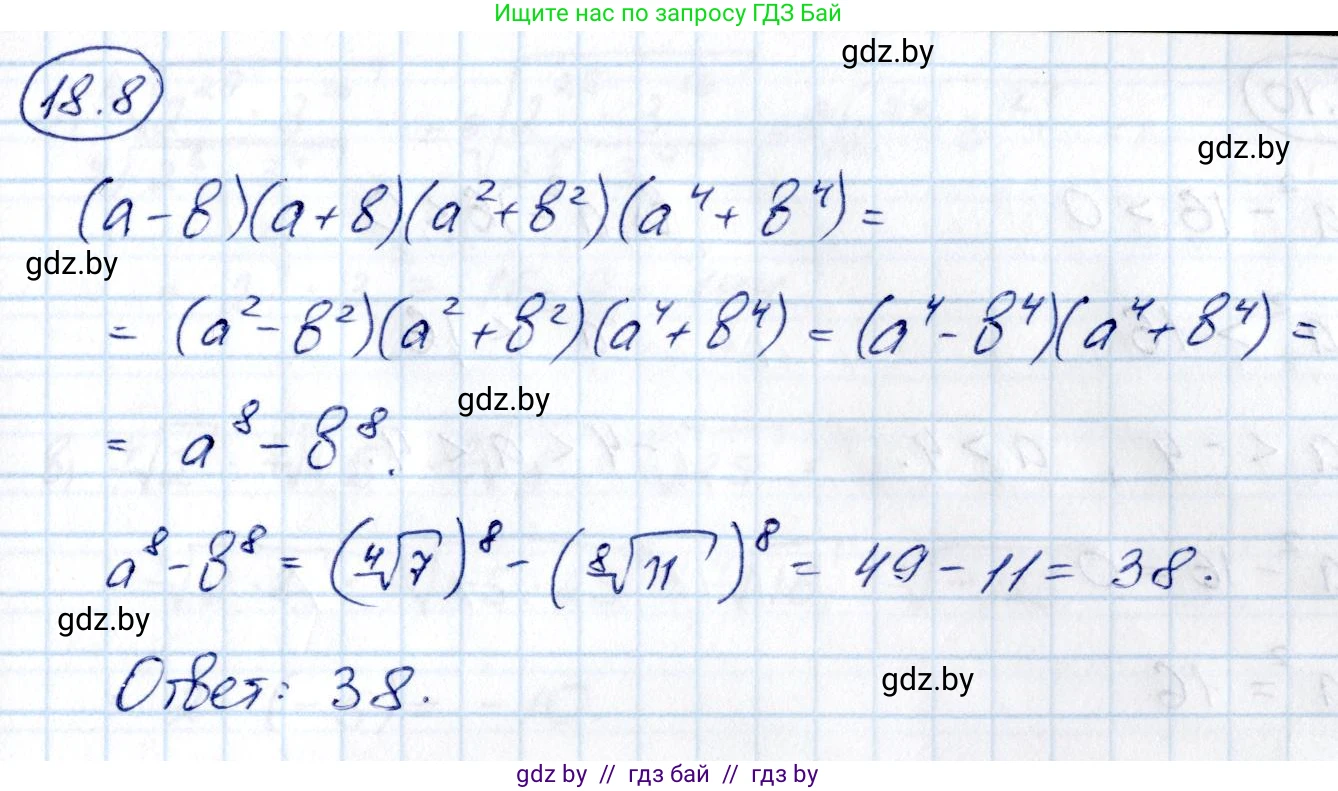 Ищите нас по запросу ГДЗ Бай
gdz.by
18.8
gdz.by
(a-в)(a+в)(a²+в²)(a⁴+в⁴)=
gdz.by
= (a²-в²)(a²+в²)(a⁴+в⁴) = (a⁴-в⁴)(a⁴+в⁴) =
gdz.by
= a⁸-в⁸.
a⁸-в⁸ = (⁴√7)⁸ - (⁸√11)⁸ = 49-11 = 38.
gdz.by
Ответ: 38.
gdz.by
gdz by // гдз бай // гдз by